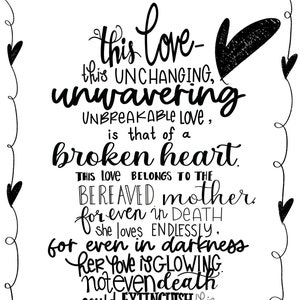 this love-
this UNCHANGING,
unwavering
UNBREAKABLE LOVE,
is that of a
broken heart.
THIS LOVE BELONGS TO THE
BEREAVED mother.
for even in DEATH
she loves ENDLESSLY,
for even in darkness
HER LOVE IS GLOWING.
not even death
could EXTINGUISH this